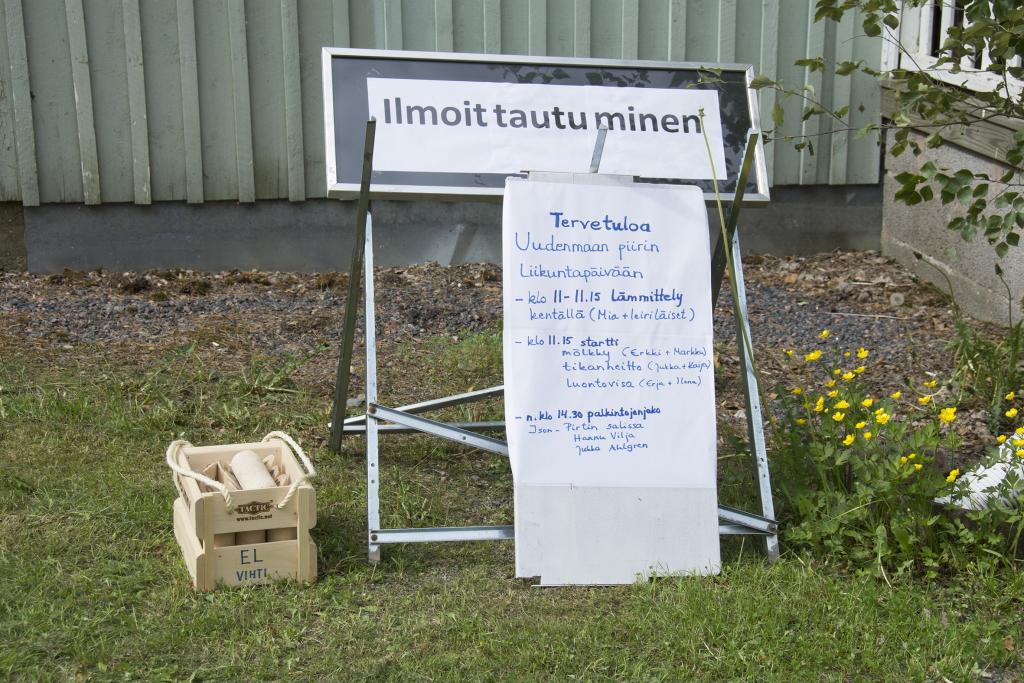 Ilmoittautuminen
Tervetuloa
Uudenmaan piirin
Liikuntapäivään
- klo 11-11.15 Lämmittely
kentällä (Mia + leiriläiset)
- klo 11.15 startti
mölkky (Erkki + Markku)
tikanheitto (Jukka + Kaija)
Luontovisa (Erja + Ilona)
- n. klo 14.30 palkintojenjako
Ison-Pirtin salissa
Hannu Vilja
Jukka Ahlgren
TACTIC
www.tactic.net
EL
VIHTI